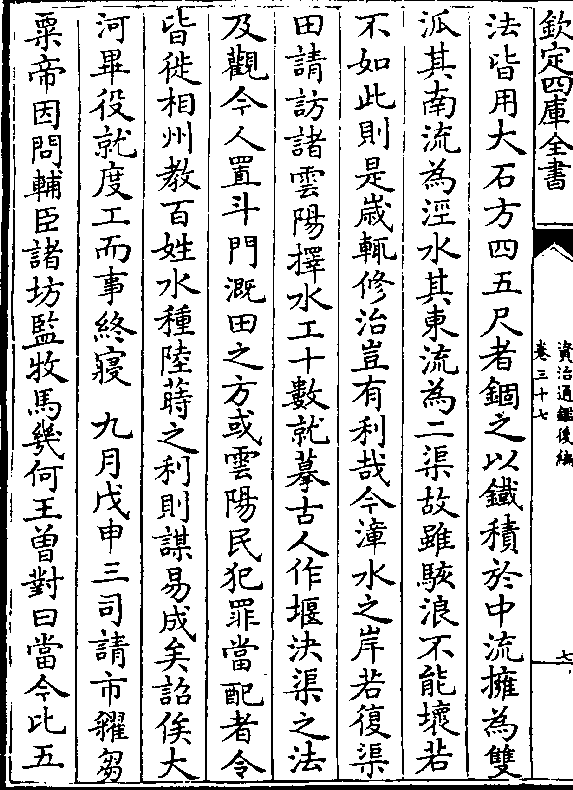 欽定四庫全書
資治通鑑後編
卷三十七
七
法皆用大石方四五尺者錮之以鐵積於中流擁為雙
派其南流為涇水其東流為二渠故雖駭浪不能壞若
不如此則是歲輒修治豈有利哉今漳水之岸若復渠
田請訪諸雲陽擇水工十數就摹古人作堰決渠之法
及觀今人置斗門溉田之方或雲陽民犯罪當配者令
皆徙相州教百姓水種陸蒔之利則謀易成矣詔俟大
河畢役就度工而事終寢　九月戊申三司請市糴芻
粟帝因問輔臣諸坊監牧馬幾何王曾對曰當今比五